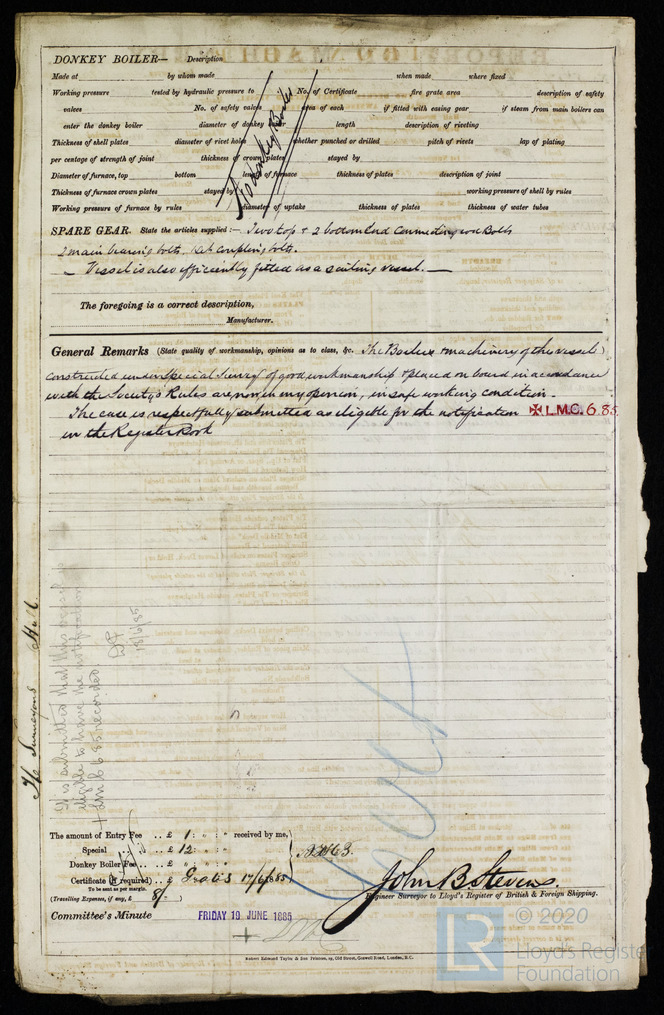 DONKEY BOILER— Description
Made at by whom made when made where fixed
Working pressure tested by hydraulic pressure to No. of Certificate fire grate area description of safety
valves No. of safety valves area of each if fitted with easing gear if steam from main boilers can
enter the donkey boiler diameter of donkey length description of riveting
Thickness of shell plates diameter of rivet holes whether punched or drilled pitch of rivets lap of plating
per centage of strength of joint thickness of crown plates stayed by
Diameter of furnace, top bottom length of furnace thickness of plates description of joint
Thickness of furnace crown plates stayed by working pressure of shell by rules
Working pressure of furnace by rules diameter of uptake thickness of plates thickness of water tubes
No Donkey Boiler
SPARE GEAR. State the articles supplied:— Two top & 2 bottom End Connecting rod Bolts
2 main bearing bolts, Set coupling bolts.
— Vessel is also efficiently fitted as a sailing vessel. —
The foregoing is a correct description,
Manufacturer.
General Remarks (State quality of workmanship, opinions as to class, &c. The Boilers & machinery of this vessel
constructed under Special Survey of good workmanship & placed on board in accordance
with the Society's Rules are now in my opinion, in safe working condition.
The case is respectfully submitted as eligible for the notification ✠ L.M.C. 6.85
in the Register Book
It is submitted that this vessel is
eligible to have the notification
+ LMC 6 85 recorded.
18/6/85
The Surveyors Hull
The amount of Entry Fee .. £ 1 : " : " received by me,
Special .. £ 12 : " : "
Donkey Boiler Fee .. £ " : " : "
Certificate (if required) .. £ Gratis 17/6/1885
To be sent as per margin.
(Travelling Expenses, if any, £ 8/- )
John B Stevens.
Engineer Surveyor to Lloyd's Register of British & Foreign Shipping.
Committee's Minute FRIDAY 19 JUNE 1885
+ LMC
© 2020
LR
Lloyd's Register
Foundation